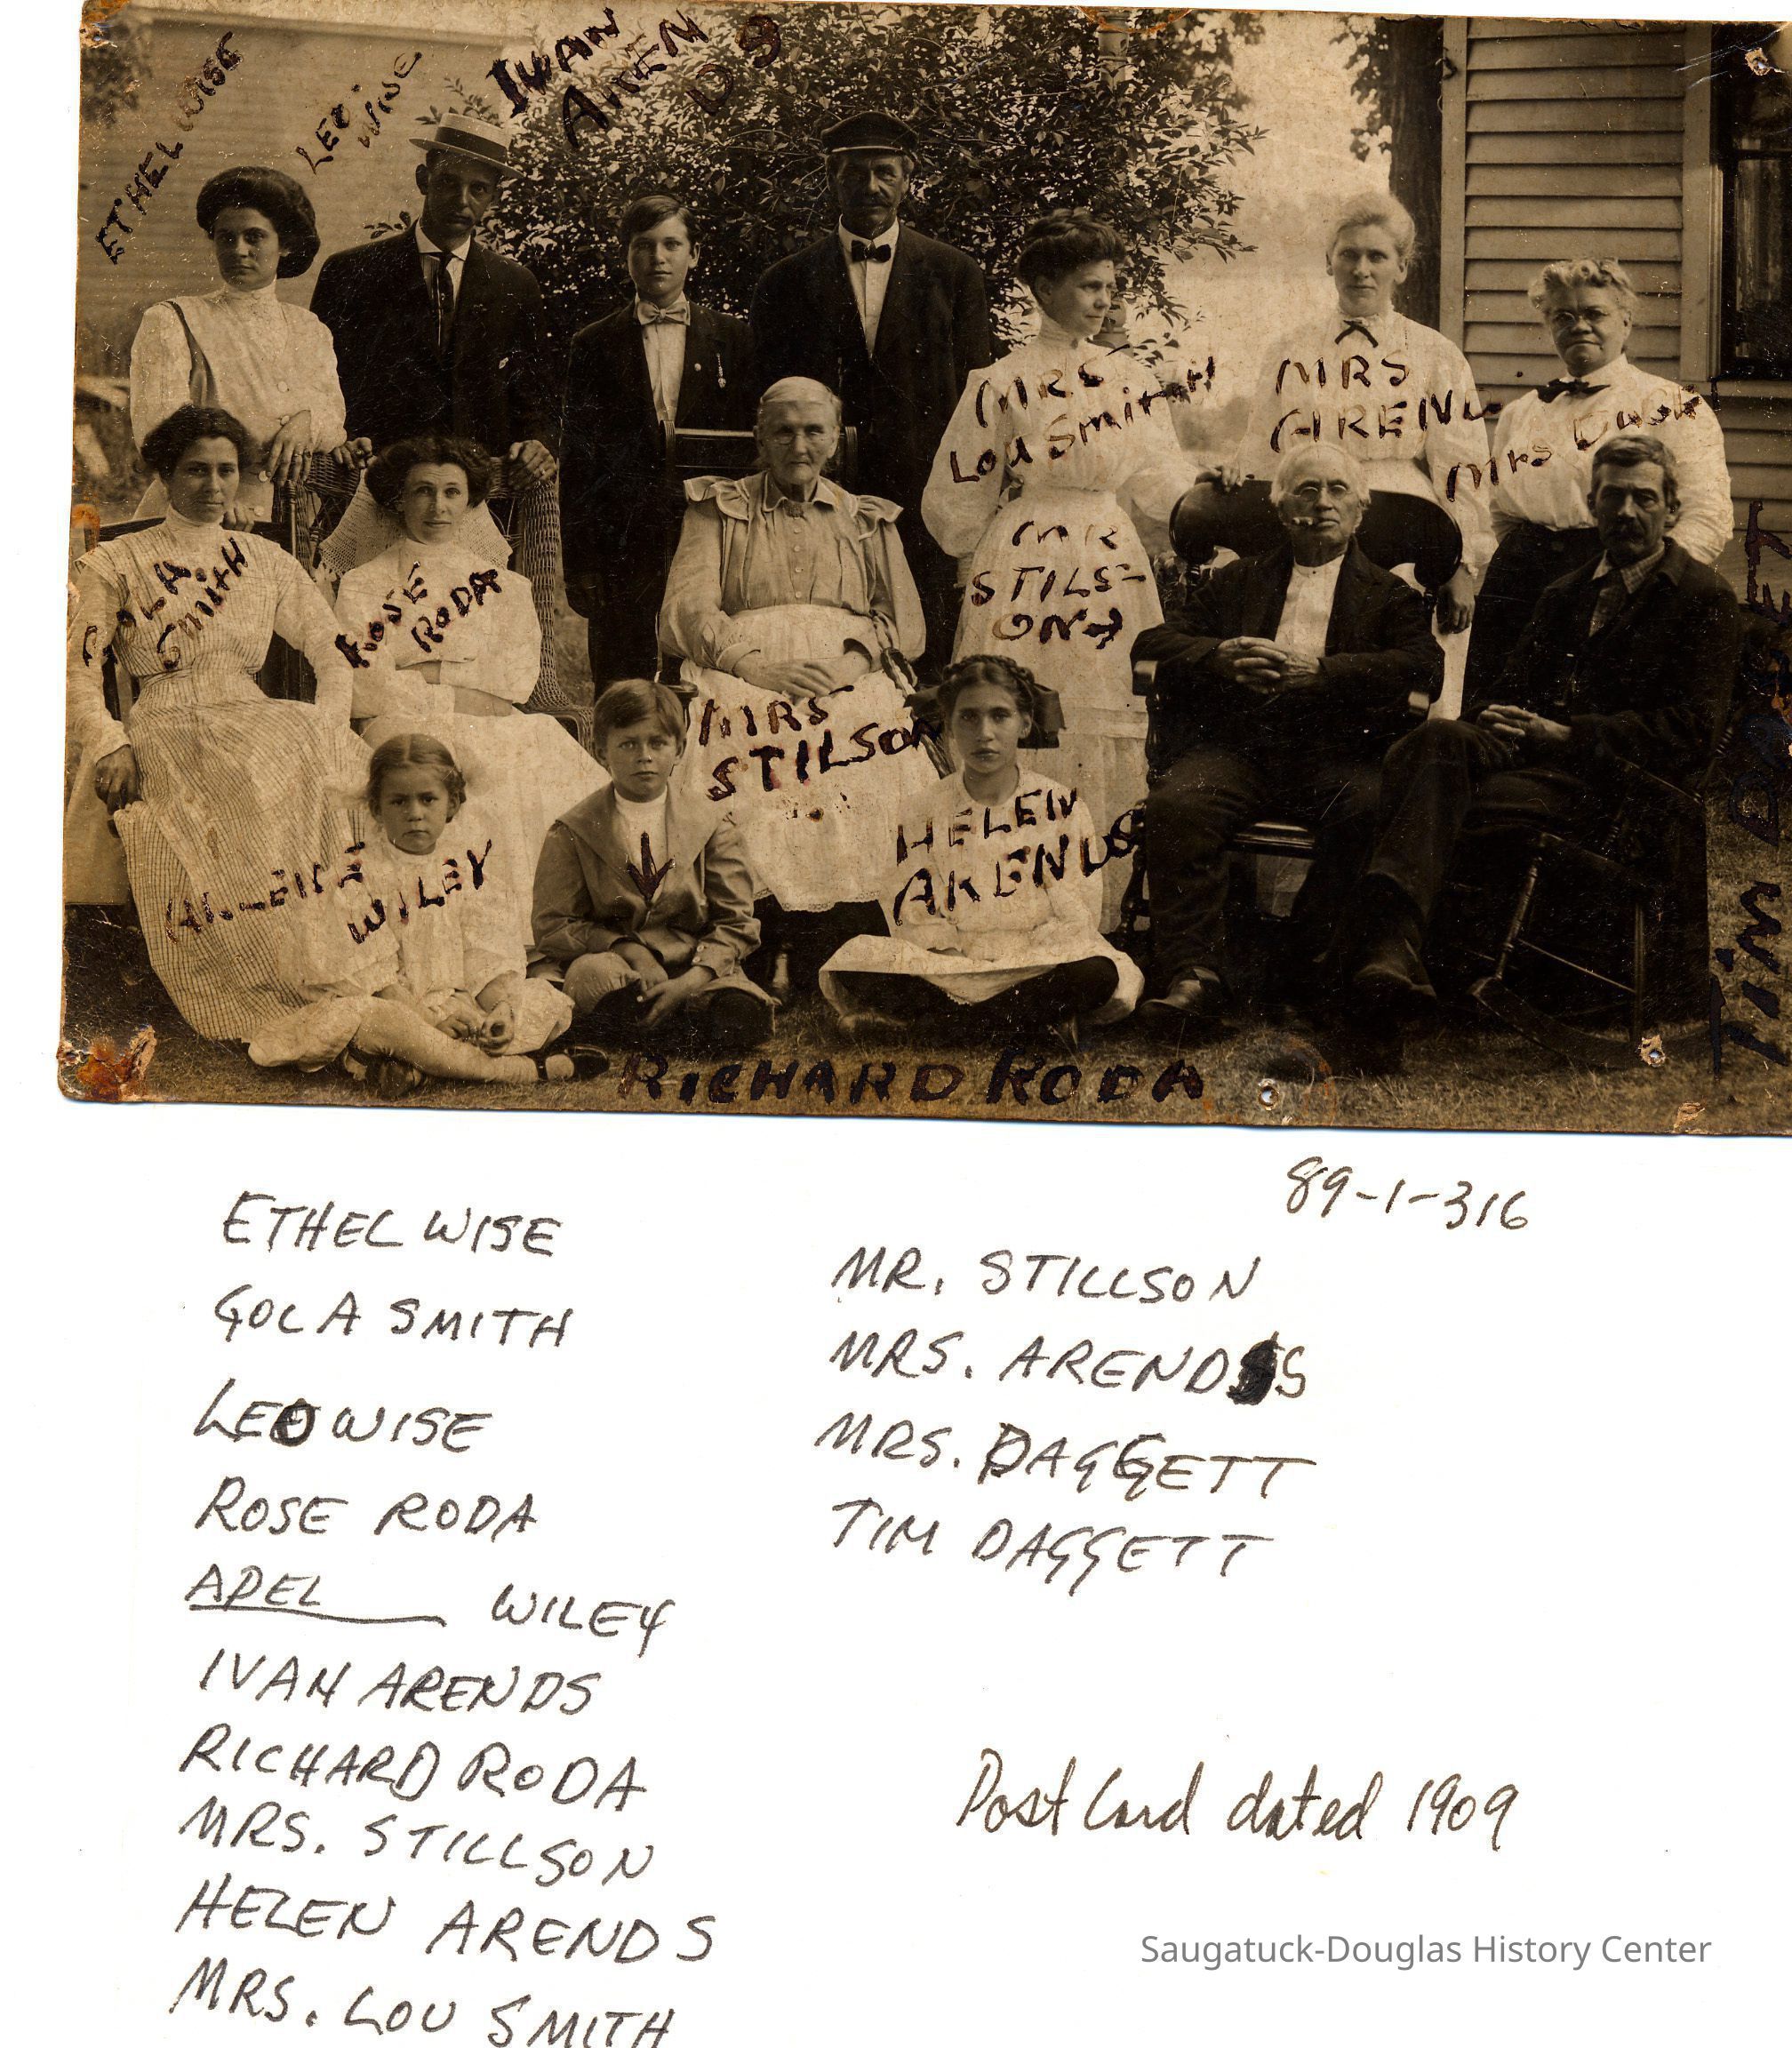 ETHEL WISE
LEO WISE
IVAN
AREN
DS
MRS.
LOU SMITH
MRS
AREND
MRS
MR
STILS-
ON→
GOLA
SMITH
ROSE
RODA
MRS
STILSON
HELEN
ARENDS
WILEY
TIM
RICHARD RODA
89-1-316
ETHEL WISE
GOLA SMITH
LEO WISE
ROSE RODA
ADEL____ WILEY
IVAN ARENDS
RICHARD RODA
MRS. STILLSON
HELEN ARENDS
MRS. LOU SMITH
MR. STILLSON
MRS. ARENDS
MRS. DAGGETT
TIM DAGGETT
Post Card dated 1909
Saugatuck-Douglas History Center